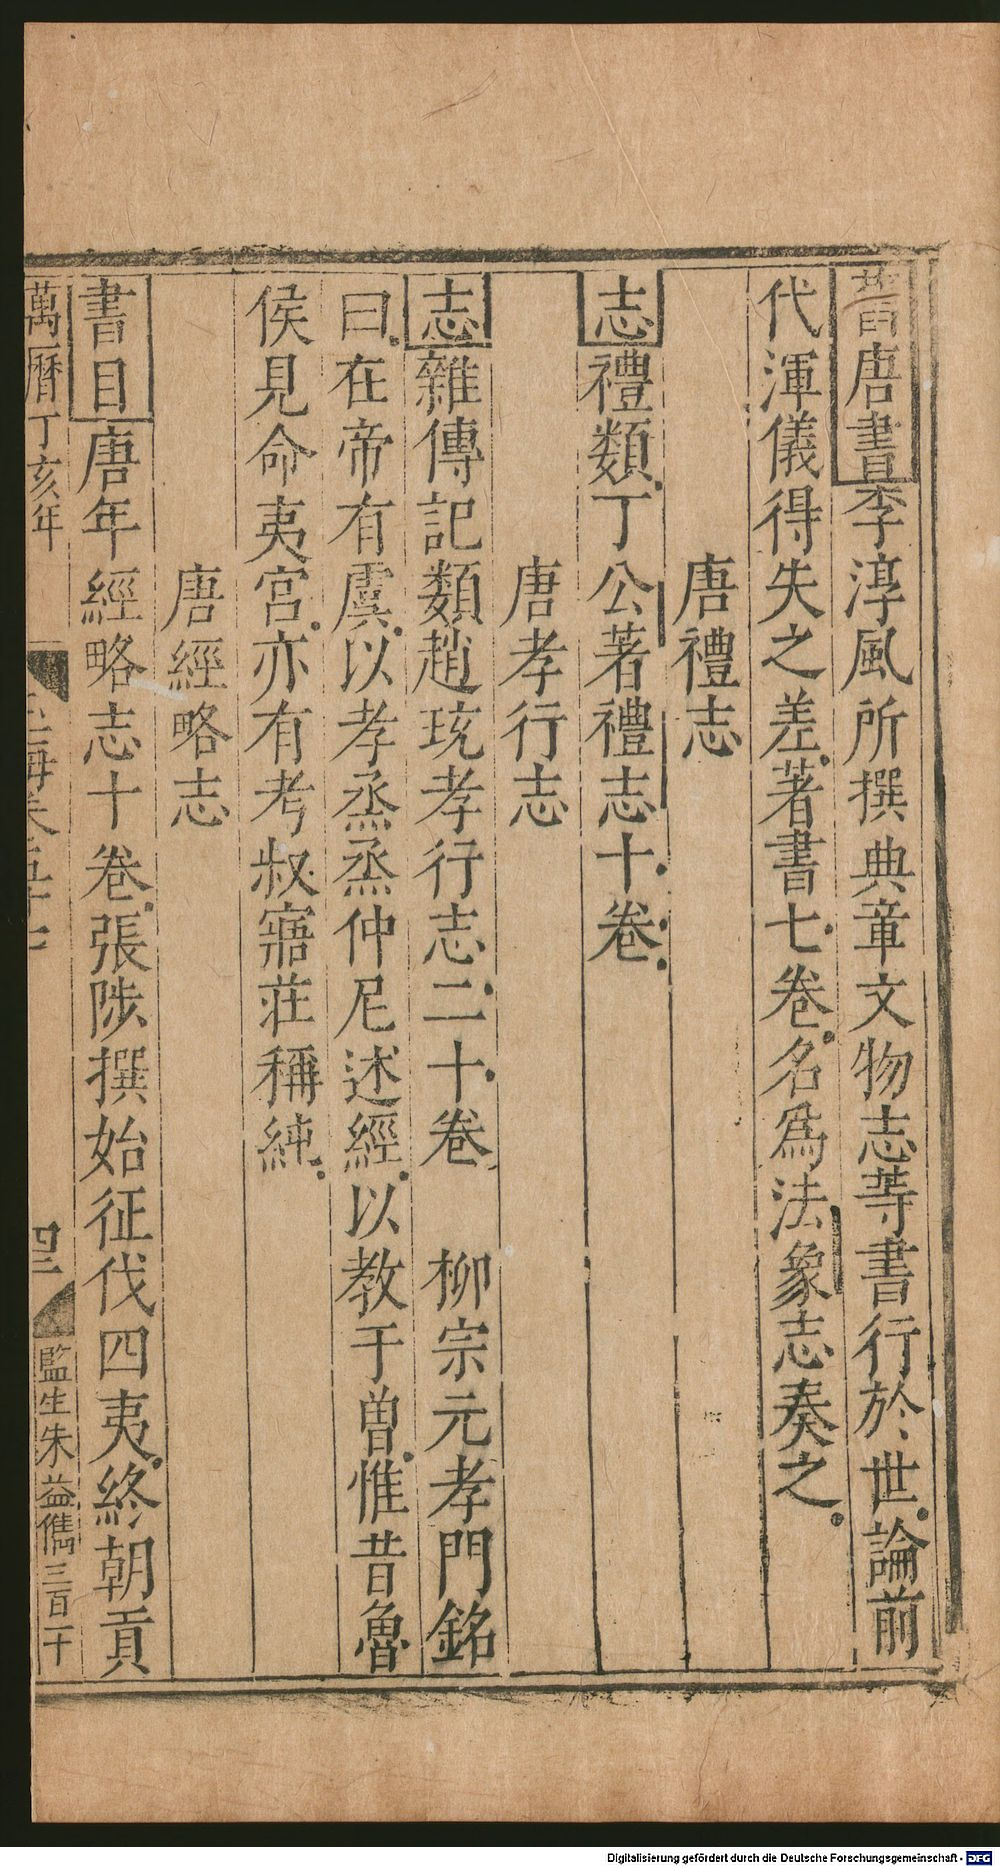 舊唐書李淳風所撰典章文物志等書行於世論前
代渾儀得失之差著書七卷名爲法象志奏之
唐禮志
志禮類丁公著禮志十卷
唐孝行志
志雜傳記類趙珫孝行志二十卷 柳宗元孝門銘
曰在帝有虞以孝烝烝仲尼述經以教于曽惟昔魯
侯見命夷宮亦有考叔寤莊稱純
唐經略志
書目唐年經略志十卷張陟撰始征伐四夷終朝貢
萬曆丁亥年
玉海卷五十七
四二
監生朱益儁三百十
Digitalisierung gefördert durch die Deutsche Forschungsgemeinschaft - DFG